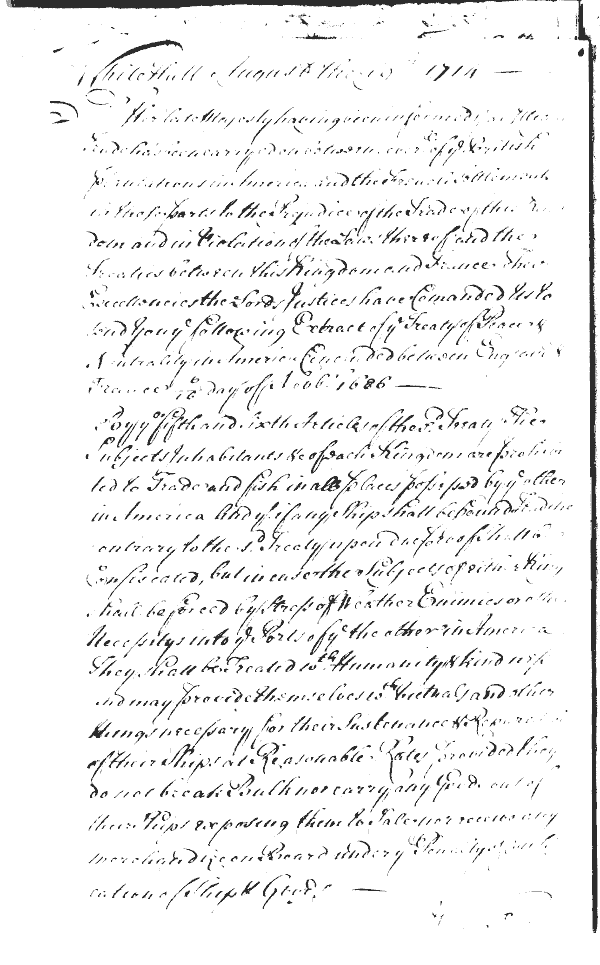 Whitehall August the 1714 —
Her late Majesty having been informed
Trade has been carryed on between of yᵉ British
plantations in America and the French Settlements
in those parts to the Prejudice of the Trade of this
dom and in Violation of the Laws thereof and the
Treaties between this Kingdom and France Their
Excellencies the Lords Justices have Comanded
send you yᵉ following Extract of yᵉ Treaty of Peace &
Neutrality in America Concluded between England &
France day of Novbʳ 1686 —
By yᵉ fifth and sixth Articles of the sᵈ Treaty The
Subjects Inhabitants &c of each Kingdom are prohibi
ted to Trade and fish in all places possessed by yᵉ other
in America And yᵗ if any Ship shall be found Trading
contrary to the sᵈ Treaty upon due proof shall be
Confiscated, but in case the Subjects of either King
shall be forced by Stress of Weather Enimies or other
Necessitys into yᵉ Ports of yᵉ the other in America
They shall be Treated wᵗʰ Humanity & kindness
and may provide themselves wᵗʰ Victuals and other
things necessary for their Sustenance &
of their Ships at Reasonable Rates, provided they
do not break Bulk nor carry any Goods out of
their ships exposing them to Sale nor receive any
merchandize on Board under yᵉ Penalty of
cation of Ship & Goods —